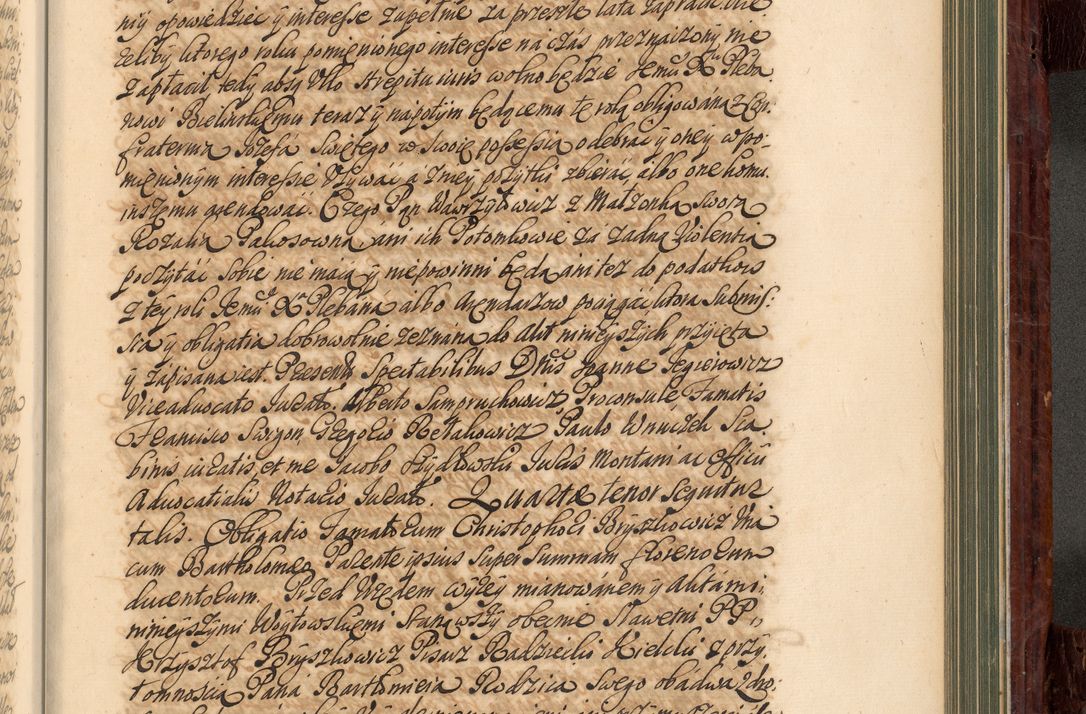 niy opowiedzieć y interesse zupełnie za przeszłe lata zapłacić
żeliby ktorego roku pomienionego interesse na czás przeznaczony nie
zapłacił tedy absq́ Vllo strepitu iuris wolno będzie Jemu Xu Pleba
nowi Bielinskiemu teraz y napotym będącemu te rolą obligowaną z Con
fraternią Iozefa Swiętego w swoię possessią odebrać y oney w po-
mienionym interessie Vżywáć a z niey pożytki zbieráć albo one komu
inszemu arendowác. Czego Pan Wawrzynowicz z Małzonką Swoią
Rozalią Pałkosowną ani ich Potomkowie za żadną Violentią
poczytáć sobie nie maią y niepowinni będą ani też do podatkow
z tey roli Jemu Xu Plebána albo Arendarzow pociągáć, ktora submis:
sia y obligatia dobrowolnie zeznána do Akt ninieyszych przyięta
y zapisana iest. Presentib Spectabilibus Dnis Joanne Jegierowicz
Viceadvocato Jurato. Alberto Sampruchowicz Proconsule Famatis
Francisco Swigon, Gregorio Retakowicz Paulo Wnuczek Sca
binis iuratis, et me Jacobo Żydkowski Juris Montani ac Officii
Advocatialis Notario Jurato. Quartae tenor sequitur
talis. Obligatio Famatorum Christophori Bryszkowicz Vna
cum Bartholomeo Parente ipsius super summam florenorum
ducentorum. Przed Vrzędem wyżey mianowánem y Aktámi
ninieyszymi Woytowskiemi stanąwszy obecnie Sławetni PP.
Krzysztof Bryszkowicz Pisarz Radziecki Kielcki z przy
tomnoscią Pána Bartłomieia Rodzica swego obadwa zdro: